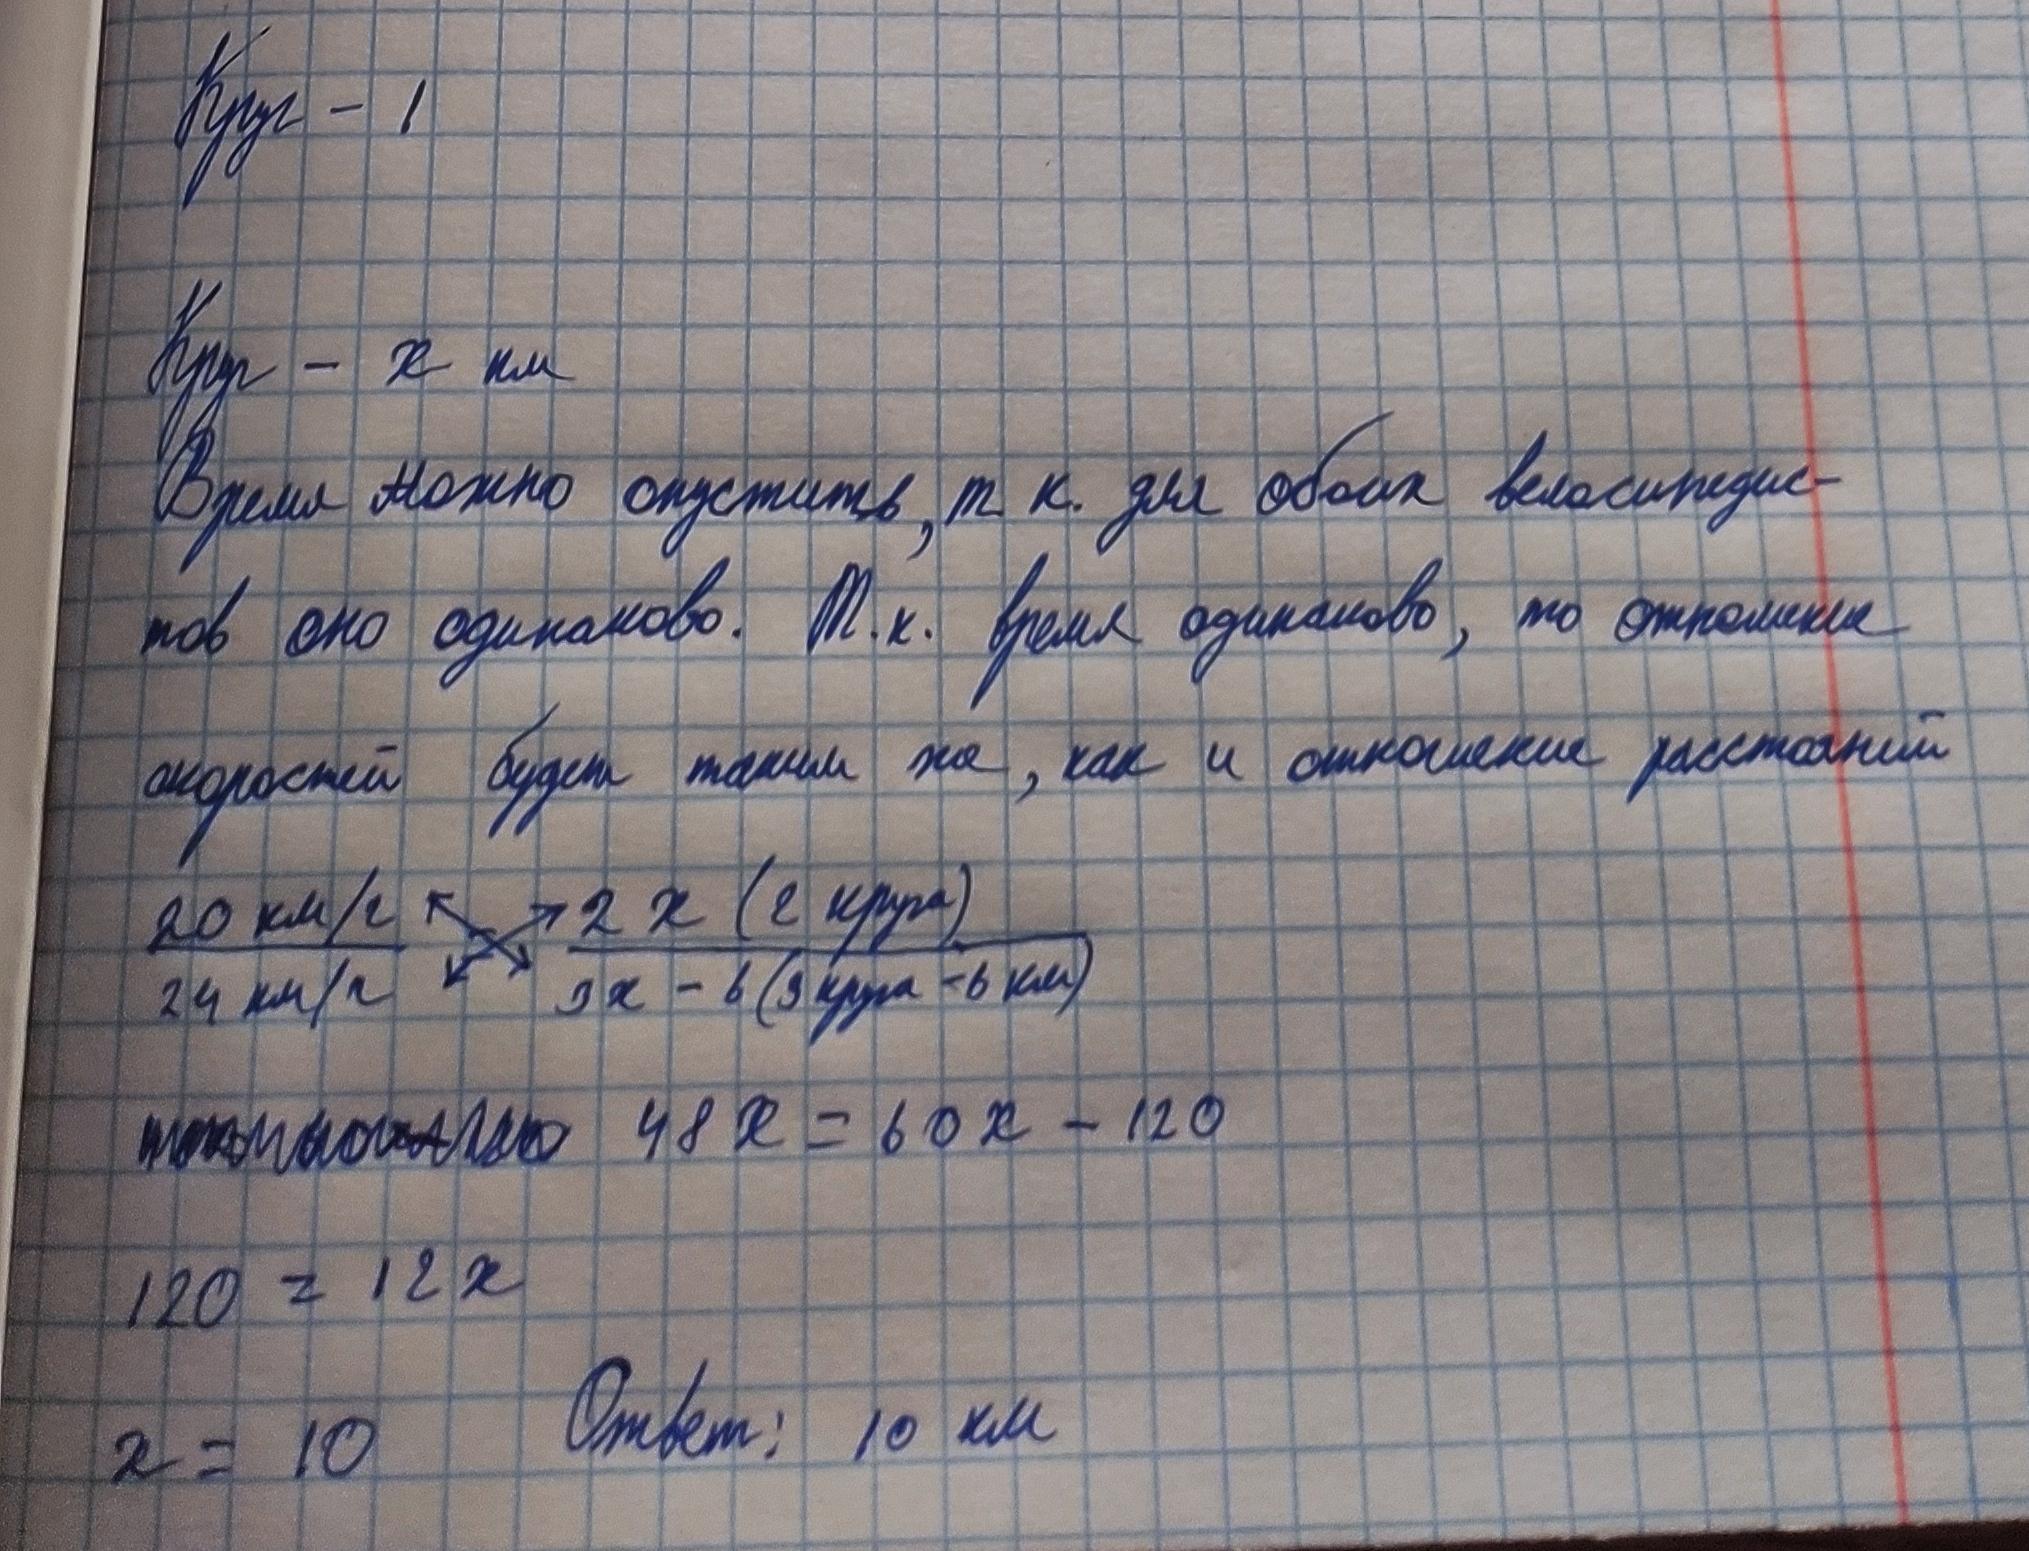 Круг - 1
Круг - x км
Время можно опустить, т к. для обоих велосипедис-
тов оно одинаково. Т.к. время одинаково, то отношение
скоростей будет таким же, как и отношение расстояний
20 км/ч 2 x (2 круга)
24 км/ч 3x - 6 (3 круга - 6 км)
48 x = 60 x - 120
120 = 12 x
x = 10 Ответ: 10 км